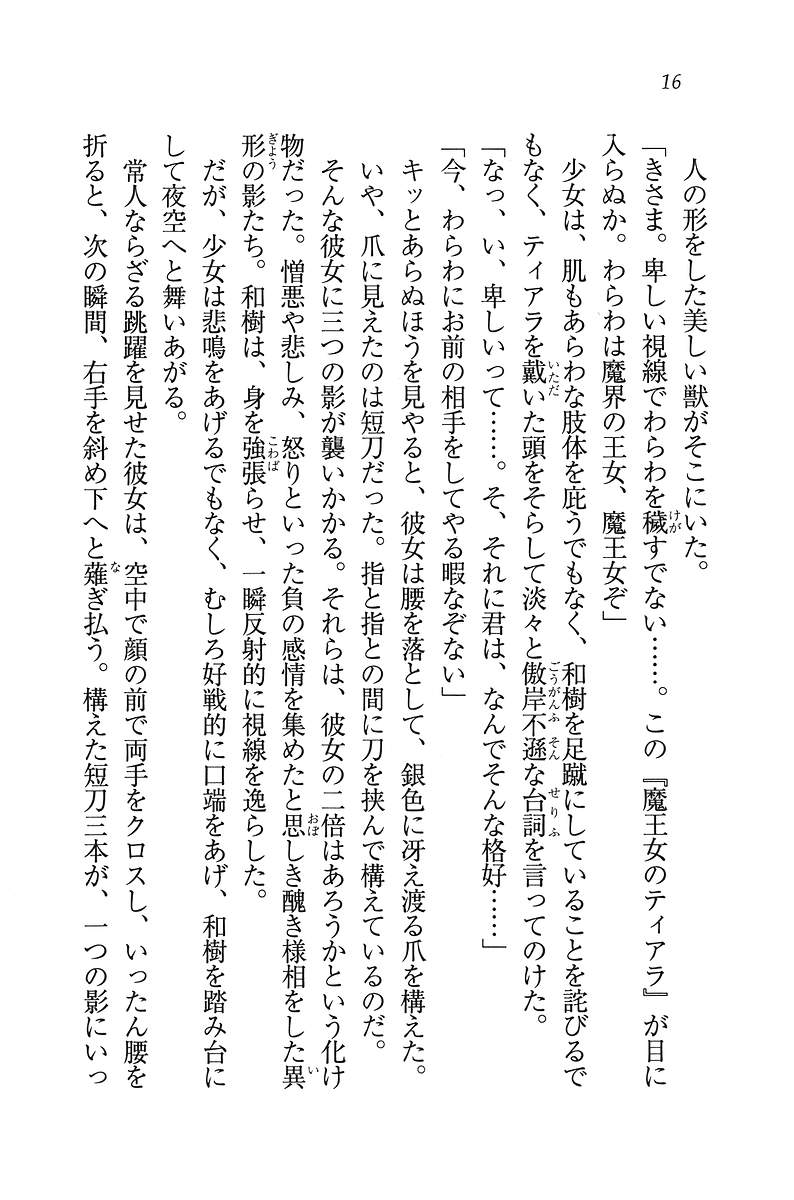 16
人の形をした美しい獣がそこにいた。
「きさま。卑しい視線でわらわを穢すでない……。この『魔王女のティアラ』が目に
入らぬか。わらわは魔界の王女、魔王女ぞ」
少女は、肌もあらわな肢体を庇うでもなく、和樹を足蹴にしていることを詫びるで
もなく、ティアラを戴いた頭をそらして淡々と傲岸不遜な台詞を言ってのけた。
「なっ、い、卑しいって……。そ、それに君は、なんでそんな格好……」
「今、わらわにお前の相手をしてやる暇なぞない」
キッとあらぬほうを見やると、彼女は腰を落として、銀色に冴え渡る爪を構えた。
いや、爪に見えたのは短刀だった。指と指との間に刀を挟んで構えているのだ。
そんな彼女に三つの影が襲いかかる。それらは、彼女の二倍はあろうかという化け
物だった。憎悪や悲しみ、怒りといった負の感情を集めたと思しき醜き様相をした異
形の影たち。和樹は、身を強張らせ、一瞬反射的に視線を逸らした。
だが、少女は悲鳴をあげるでもなく、むしろ好戦的に口端をあげ、和樹を踏み台に
して夜空へと舞いあがる。
常人ならざる跳躍を見せた彼女は、空中で顔の前で両手をクロスし、いったん腰を
折ると、次の瞬間、右手を斜め下へと薙ぎ払う。構えた短刀三本が、一つの影にいっ